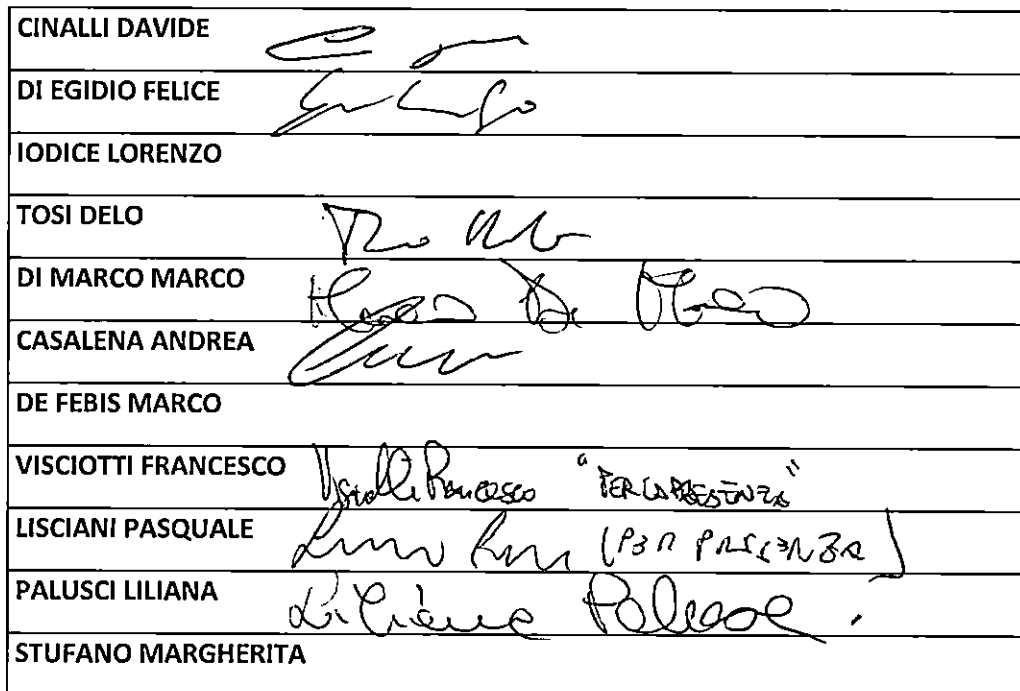 CINALLI DAVIDE
DI EGIDIO FELICE
IODICE LORENZO
TOSI DELO
DI MARCO MARCO Marco Di Marco
CASALENA ANDREA
DE FEBIS MARCO
VISCIOTTI FRANCESCO Visciotti Francesco "PER LA PRESENZA"
LISCIANI PASQUALE (PER PRESENZA)
PALUSCI LILIANA Liliana Palusci
STUFANO MARGHERITA